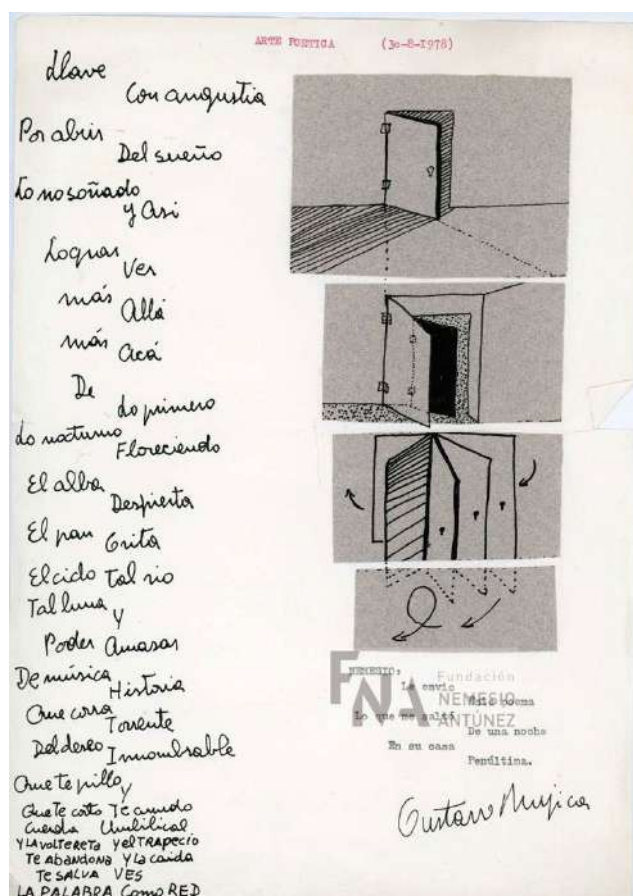 ARTE POETICA (30-8-1978)
Llave
Con angustia
Por abrir
Del sueño
Lo no soñado
y Asi
Lograr
Ver
más
Allá
más
Acá
De
Lo primero
Lo nocturno
Floreciendo
El alba
Despierta
El pan
Grita
El cielo Tal rio
Tal luna y
Poder Amasar
De música
Historia
Que corra
Torrente
Del deseo
Innombrable
Que te pillo
y
Que te corto Te anudo
Cuerda Umbilical
Y LA VOLTERETA Y el TRAPECIO
Te Abandona Y La caida
Te SALVA VES
LA PALABRA Como RED
NEMESIO:
Le envío
poema
Lo que me saltó
De una noche
En su casa
Penúltima.
Gustavo Mujica
FNA
Fundación
NEMESIO
ANTÚNEZ